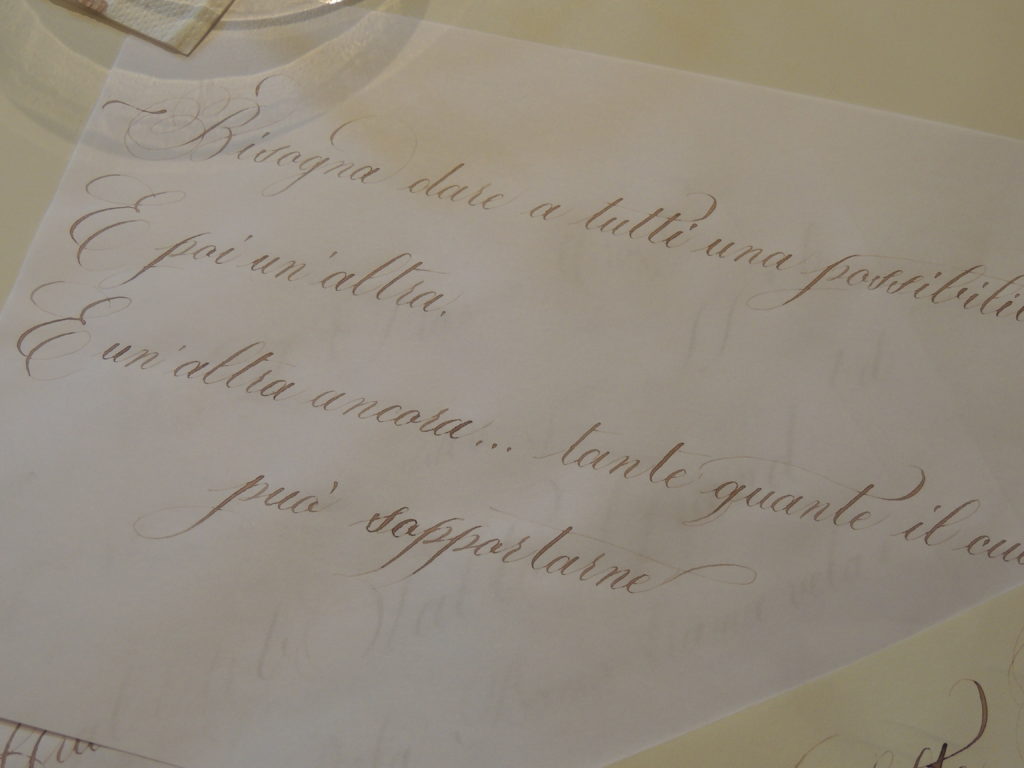 Bisogna dare a tutti una possibilit
E poi un'altra.
E un'altra ancora... tante quante il cuo
può sopportarne